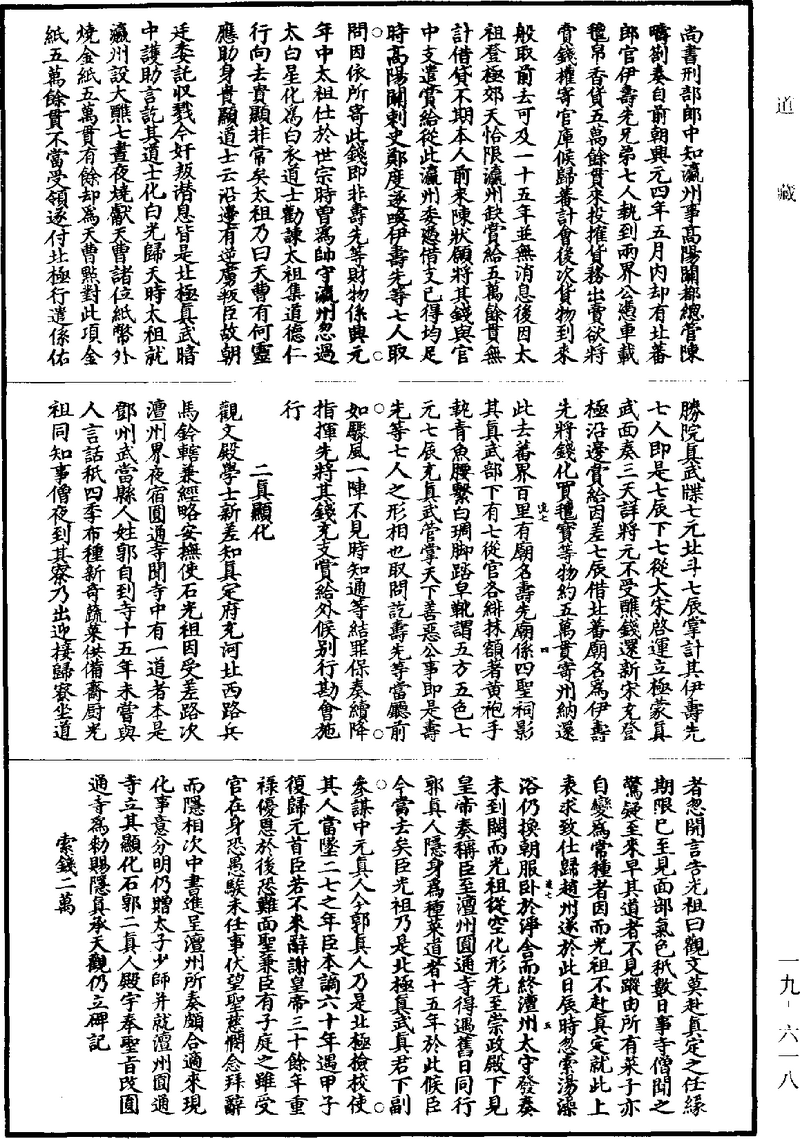 道藏
尚書刑部郎中知瀛州事高陽關都總管陳
疇劄奏自前朝興元四年五月內却有北蕃
郎官伊壽先兄弟七人執到兩界公憑車載
氊帛香貨五萬餘貫來投榷貨務出賣欲將
賣錢權寄官庫候歸蕃計會後次貨物到來
般取前去可及一十五年並無消息後因太
祖登極郊天恰限瀛州缺賞給五萬餘貫無
計借貸不期本人前來陳狀願將其錢與官
中支遣賞給從此瀛州委憑借支已得均足
時高陽關刺史鄭度逐喚伊壽先等七人取
問因依所寄此錢即非壽先等財物係興元
年中太祖仕於世宗時曾爲帥守瀛州忽過
太白星化爲白衣道士勸諫太祖集道德仁
行向去貴顯非常矣太祖乃曰天曹有何靈
應助身貴顯道士云沿邊有逆虜叛臣故朝
廷委託収戮令奸叛潛息皆是北極真武暗
中護助言訖其道士化白光歸天時太祖就
瀛州設大醮七晝夜燒獻天曹諸位紙幣外
燒金紙五萬貫有餘却爲天曹點對此項金
紙五萬餘貫不當受領逐付北極行遣係佑
勝院真武牒七元北斗七辰掌計其伊壽先
七人即是七辰下七從大宋啓運立極蒙真
武面奏三天詳將元不受醮錢還新宋充登
極沿邊賞給因差七辰借北蕃廟名爲伊壽
先將錢化買氊寶等物約五萬貫寄州納還
此去蕃界百里有廟名壽先廟係四聖祠影
其真武部下有七從官各緋抹額者黃袍手
執青魚腰繫白琱脚踏皁靴謂五方五色七
元七辰充真武管掌天下善惡公事即是壽
先等七人之形相也取問訖壽先等當廳前
如驟風一陣不見時知通等結罪保奏續降
指揮先將其錢充支賞給外候别行勘會施
行
二真顯化
觀文殿學士新差知真定府充河北西路兵
馬鈐轄兼經略安撫使石光祖因受差路次
澶州界夜宿圓通寺聞寺中有一道者本是
鄧州武當縣人姓郭自到寺十五年未嘗與
人言話秖四季布種新奇蔬菜供備齋厨光
祖同知事僧夜到其寮乃出迎接歸寮坐道
者忽開言告光祖曰觀文莫赴真定之任緣
期限已至見面部氣色秖數日事寺僧聞之
驚疑至來早其道者不見蹤由所有菜子亦
自變爲常種者因而光祖不赴真定就此上
表求致仕歸趙州遂於此日辰時忽索湯澡
浴仍換朝服卧於淨舍而終澶州太守發奏
未到闕而光祖從空化形先至崇政殿下見
皇帝奏稱臣至澶州圓通寺得遇舊日同行
郭真人隱身爲種菜道者十五年於此候臣
今當去矣臣光祖乃是北極真武真君下副
參謀中元真人今郭真人乃是北極檢校使
其人當墜二七之年臣本謫六十年遇甲子
復歸元首臣若不來辭謝皇帝三十餘年重
祿優恩於後恐難面聖兼臣有子庭之雖受
官在身恐愚騃未任事伏望聖慈憫念拜辭
而隱相次中書進呈澶州所奏頗合適來現
化事意分明仍贈太子少師并就澶州圓通
寺立其顯化石郭二真人殿宇奉聖旨改圓
通寺爲勑賜隱真承天觀仍立碑記
索錢二萬
一九-六一八